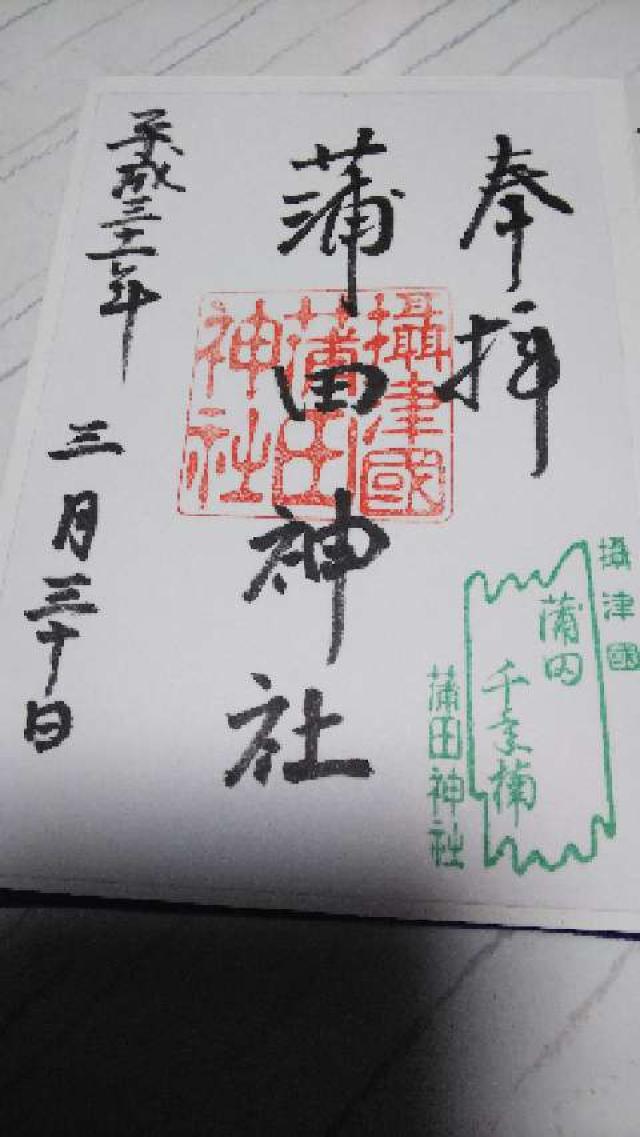 奉拝
蒲田神社
攝津國
蒲田
神社
平成三十一年
三月三十日
攝津國
蒲田
千年楠
蒲田神社